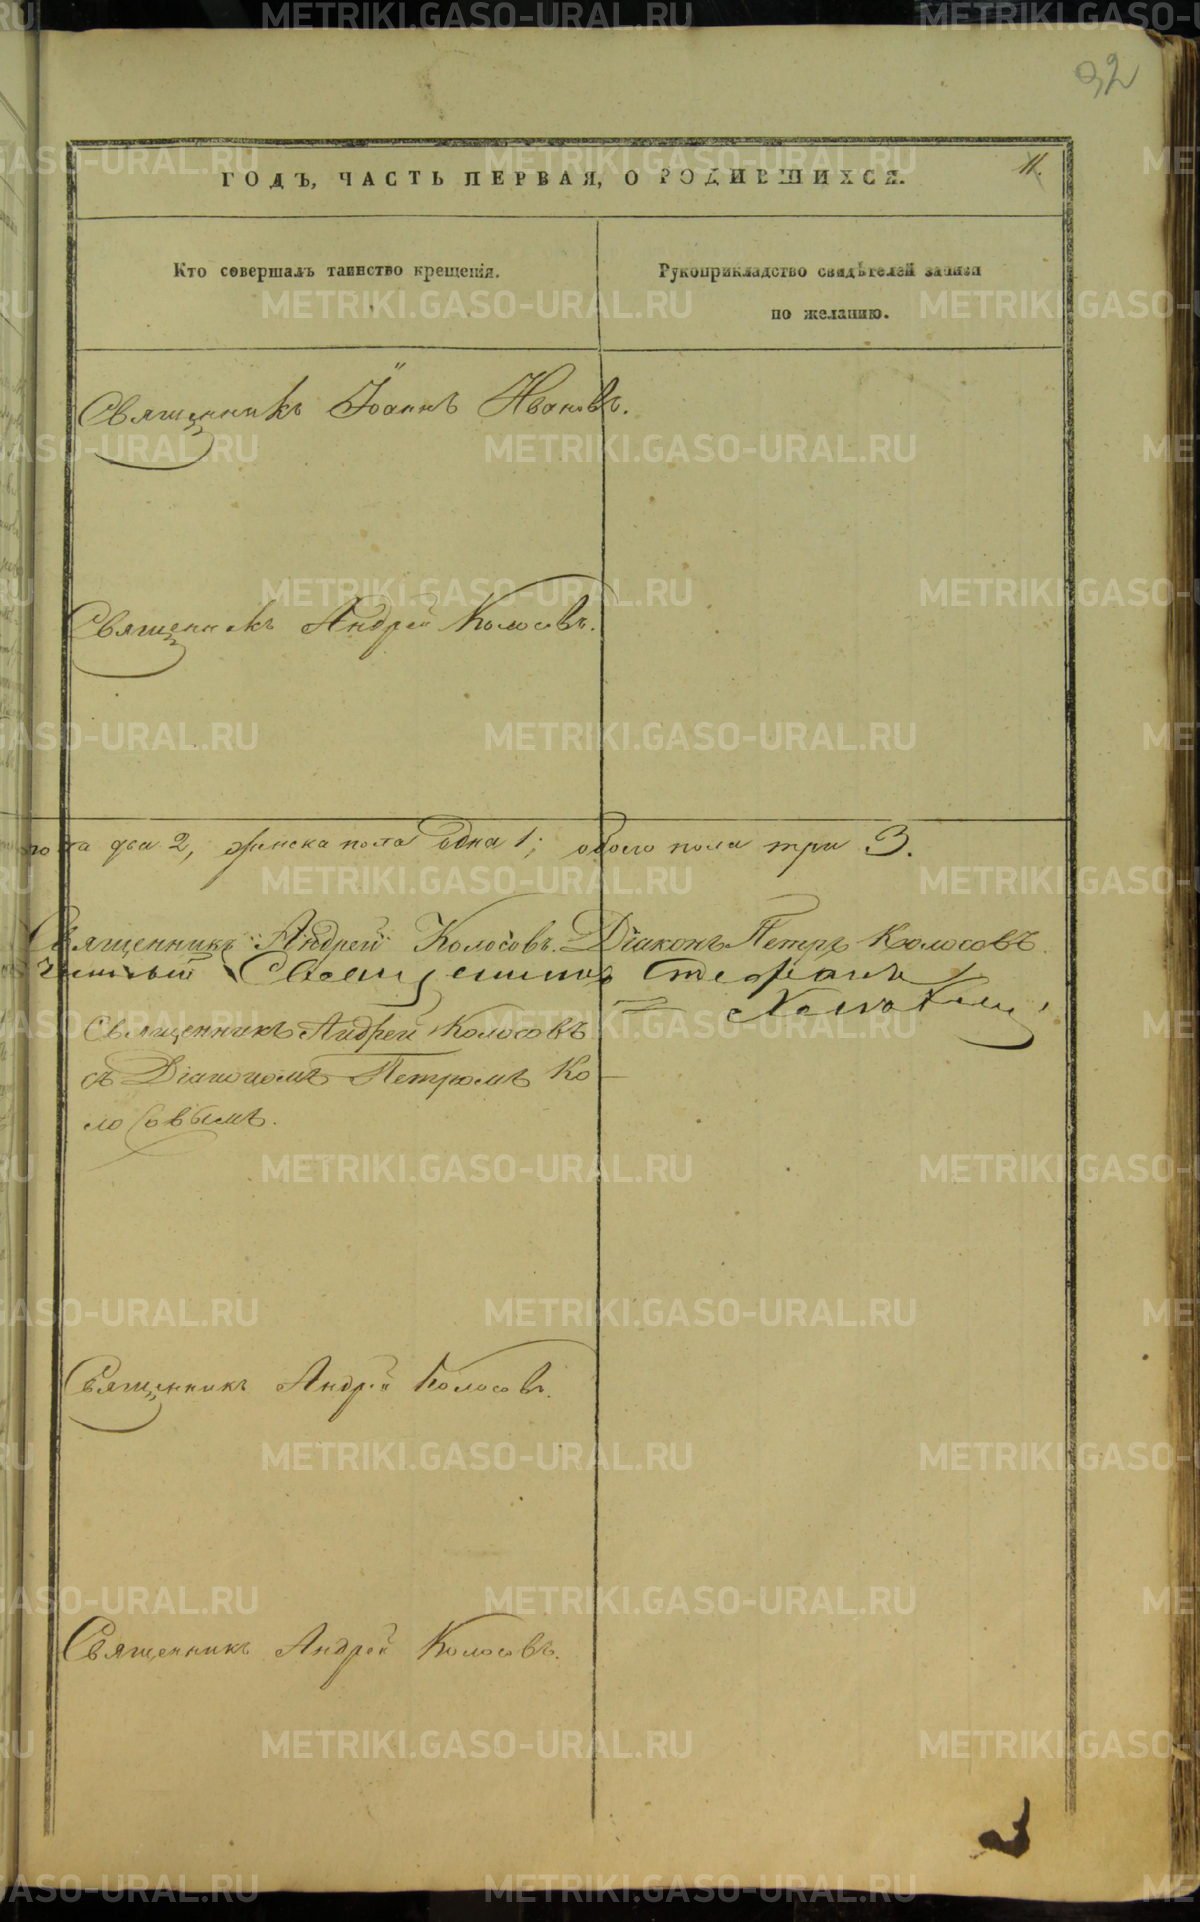 32
ГОДЪ, ЧАСТЬ ПЕРВАЯ, О РОДИВШИХСЯ.
11.
Кто совершалъ таинство крещенія.
Рукоприкладство свидѣтелей записи
по желанію.
Священникъ Іоаннъ Ивановъ.
Священникъ Андрей Колосовъ.
пола два 2, женска пола одна 1; обоего пола три 3.
Священникъ Андрей Колосовъ. Діаконъ Петръ Колосовъ.
Священникъ Стефанъ
Священникъ Андрей Колосовъ
съ Діакономъ Петромъ Ко-
лосовымъ.
Священникъ Андрей Колосовъ.
Священникъ Андрей Колосовъ.
METRIKI.GASO-URAL.RU